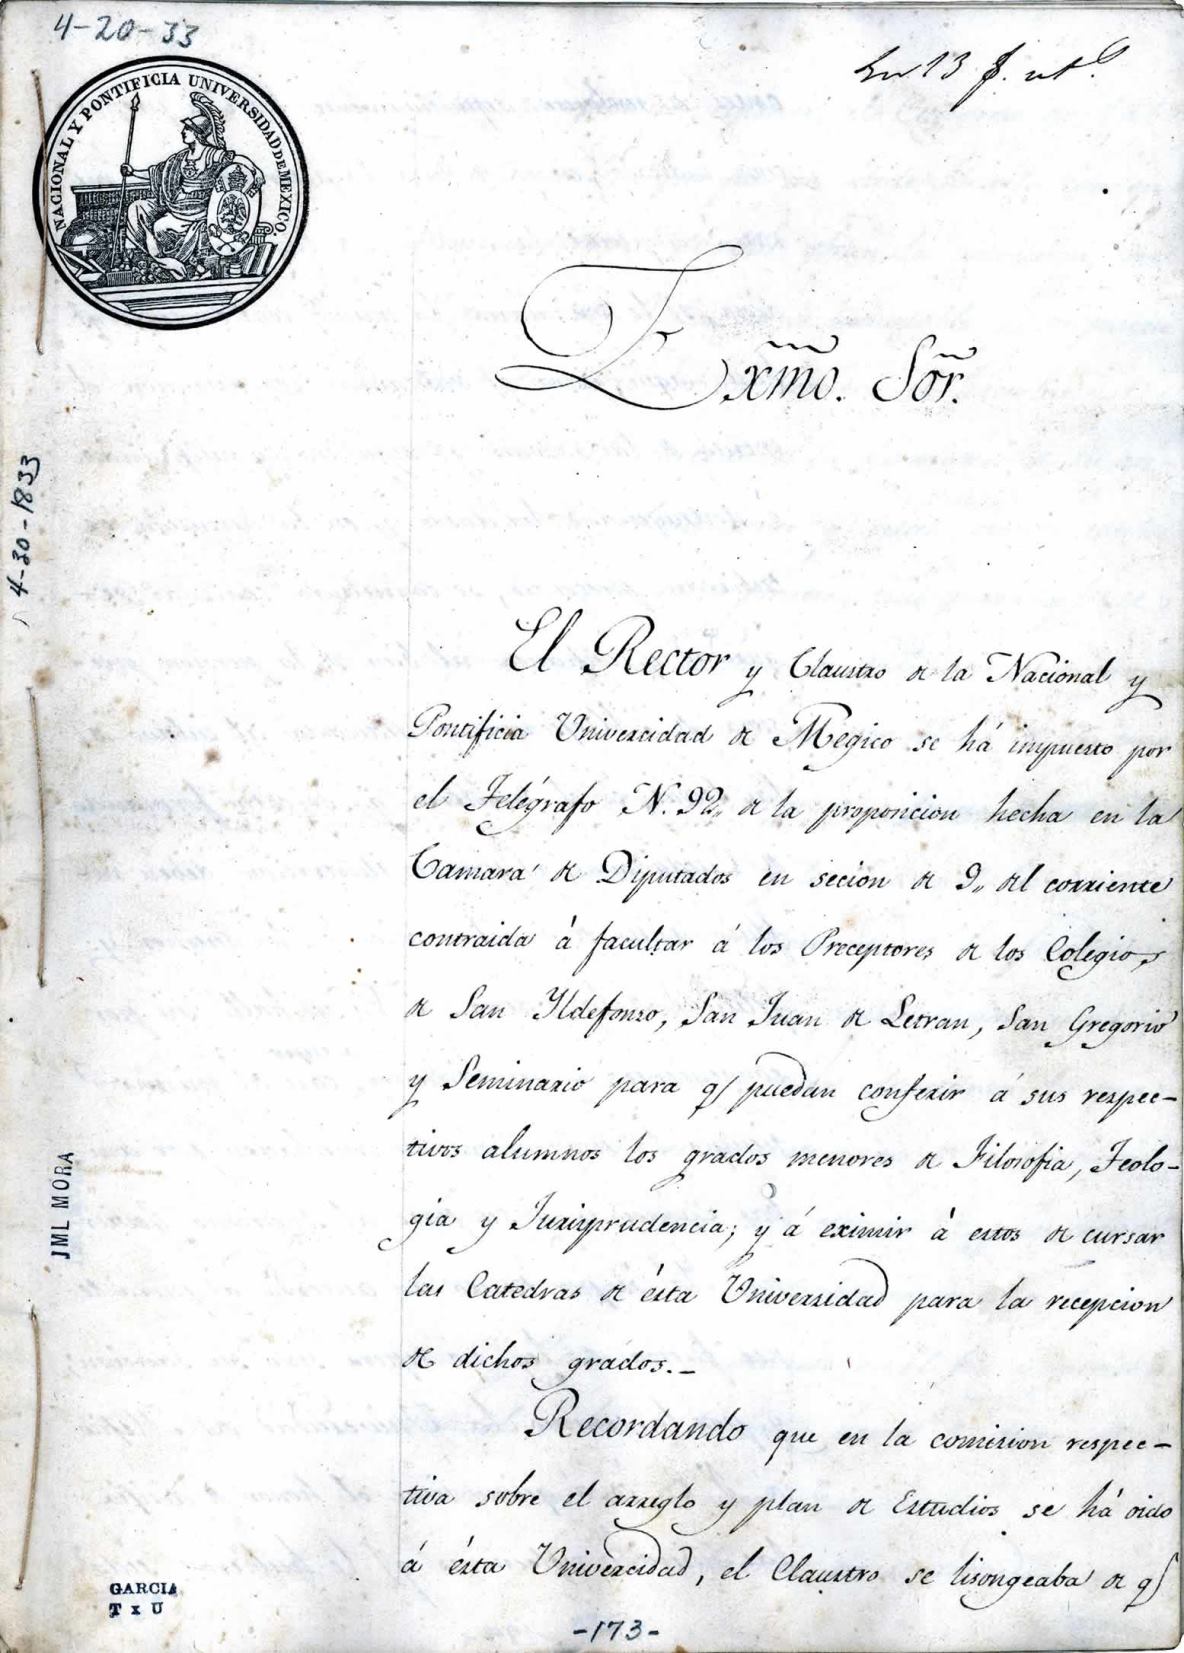 4-20-33
En 13 f. uts.
NACIONAL Y PONTIFICIA UNIVERSIDAD DE MEXICO.
Exmo. Sor.
4-30-1833
El Rector y Claustro de la Nacional y
Pontificia Univercidad de Megico se há impuesto por
el Telégrafo N. 92,, de la proposicion hecha en la
Camara de Diputados en secion de 9,, del corriente
contraida á facultar á los Preceptores de los Colegios
de San Yldefonso, San Juan de Letran, San Gregorio
y Seminario para q puedan conferir á sus respec-
tivos alumnos los grados menores de Filosofia, Teolo-
gia y Jurisprudencia; y á eximir á estos de cursar
las Catedras de ésta Universidad para la recepcion
de dichos grados.-
Recordando que en la comision respec-
tiva sobre el arreglo y plan de Estudios se há oido
á ésta Univercidad, el Claustro se lisongeaba de q
JML MORA
GARCIA
T x U
-173-